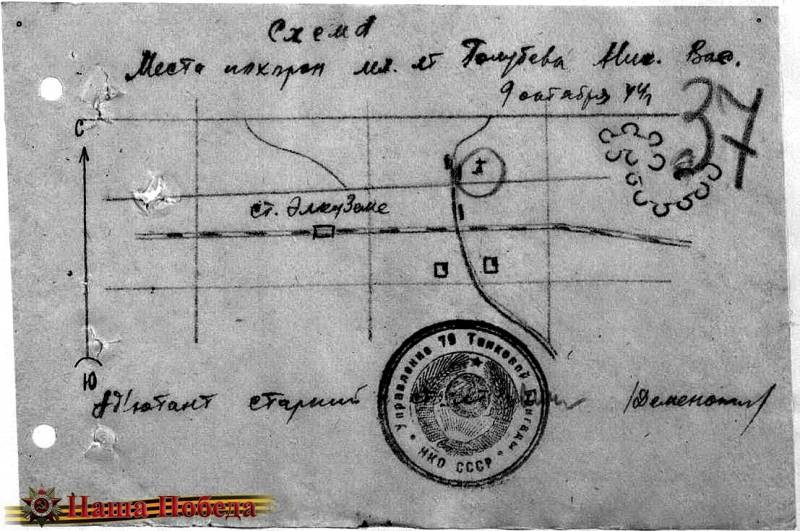 Схема
Места похорон мл. лт Голубева Ник. Вас.
9 октября 44 г.
37
С
ст. Элкуземе
Ю
Адъютант старший
Управление 78 Танковой Бригады
НКО СССР
Наша Победа